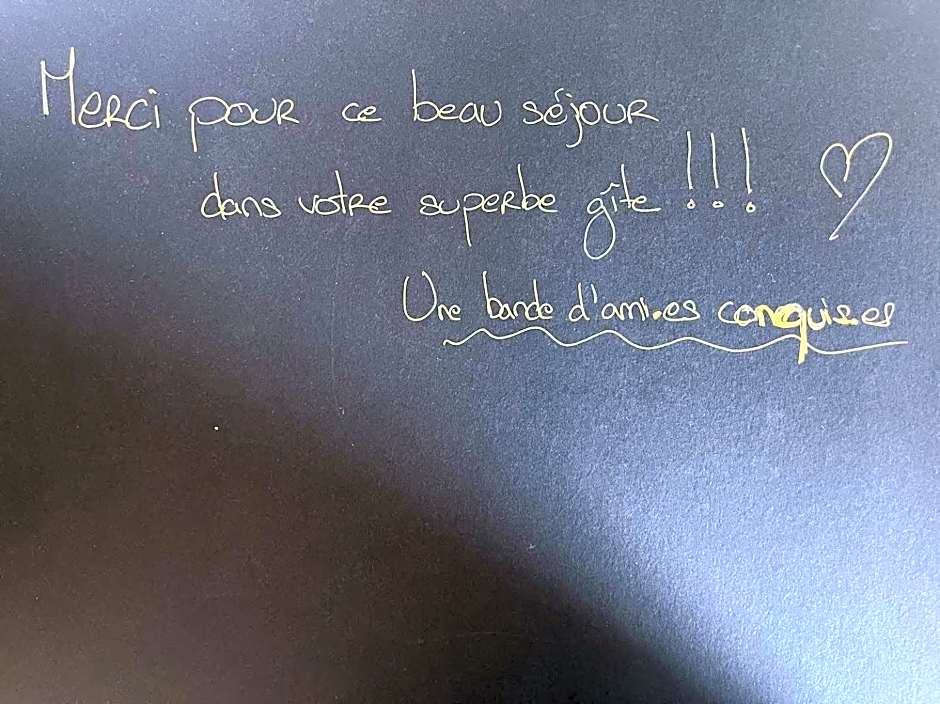 Merci pour ce beau séjour
dans votre superbe gîte !!! ♡
Une bande d'ami.es conquis.es